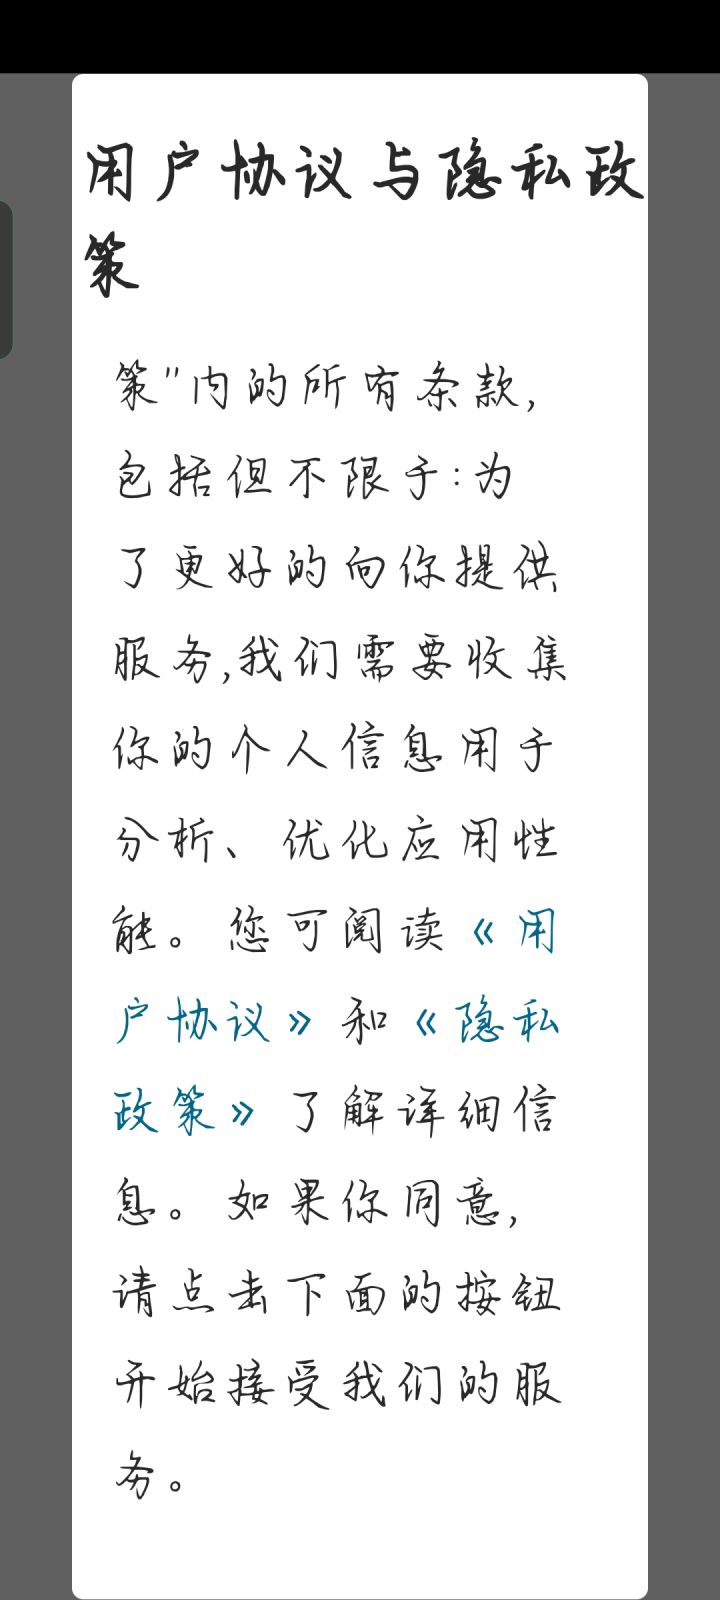 用户协议与隐私政
策
策"内的所有条款,
包括但不限于:为
了更好的向你提供
服务,我们需要收集
你的个人信息用于
分析、优化应用性
能。您可阅读《用
户协议》和《隐私
政策》了解详细信
息。如果你同意,
请点击下面的按钮
开始接受我们的服
务。